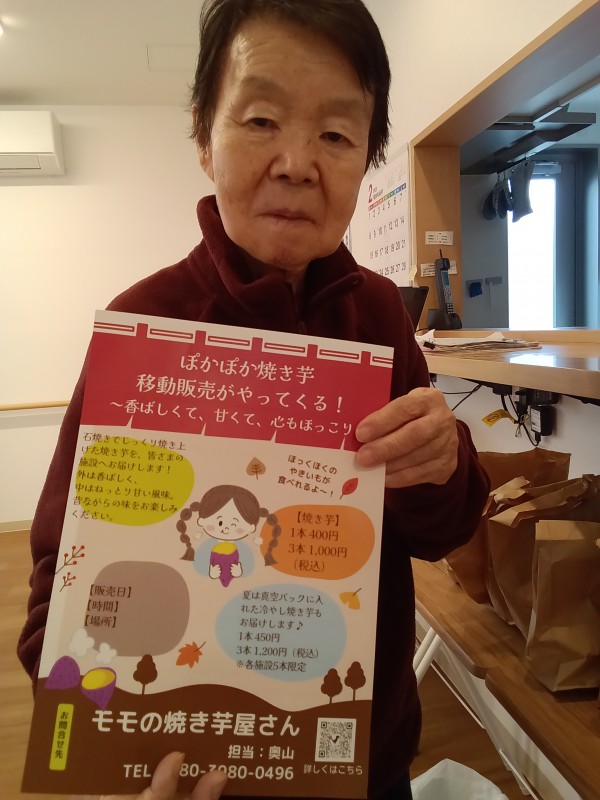 ぽかぽか焼き芋
移動販売がやってくる！
～香ばしくて、甘くて、心もほっこり
石焼きでじっくり焼き上
げた焼き芋を、皆さまの
施設へお届けします！
外は香ばしく、
中はねっとり甘い風味。
昔ながらの味をお楽しみ
ください。
ほっくほくの
やきいもが
食べれるよ～！
【焼き芋】
1本400円
3本1,000円
（税込）
【販売日】
【時間】
【場所】
夏は真空パックに入
れた冷やし焼き芋も
お届けします♪
1本450円
3本1,200円（税込）
※各施設5本限定
お問合せ先
モモの焼き芋屋さん
担当：奥山
TEL 80-3980-0496
詳しくはこちら
2